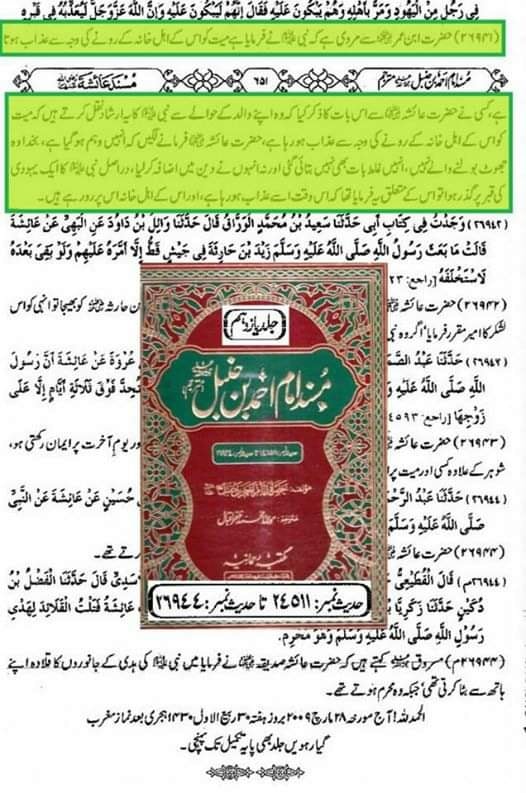 فِي رَجُلٍ مِنَ الْيَهُودِ وَمَرَّ بِأَهْلِهِ وَهُمْ يَبْكُونَ عَلَيْهِ فَقَالَ إِنَّهُمْ لَيَبْكُونَ عَلَيْهِ وَإِنَّ اللَّهَ عَزَّ وَجَلَّ لَيُعَذِّبُهُ فِي قَبْرِهِ
(۲۶۹۴۱) حضرت ابن عمر سے مروی ہے کہ نبی ﷺ نے فرمایا ہے میت کو اس کے اہل خانہ کے رونے کی وجہ سے عذاب ہوتا
مسند امام احمد بن حنبل مترجم
۶۵۱
مسند عائشة
ہے، کسی نے حضرت عائشہ سے اس بات کا ذکر کیا کہ وہ اپنے والد کے حوالے سے نبی ﷺ کا یہ ارشاد نقل کرتے ہیں کہ میت
کو اس کے اہل خانہ کے رونے کی وجہ سے عذاب ہو رہا ہے، حضرت عائشہ فرمانے لگیں کہ انہیں وہم ہو گیا ہے، بخدا وہ
جھوٹ بولنے والے نہیں، انہیں غلط بات بھی نہیں بتائی گئی اور نہ انہوں نے دین میں اضافہ کر لیا، دراصل نبی ﷺ کا ایک یہودی
کی قبر پر گذر ہوا تو اس کے متعلق یہ فرمایا تھا کہ اس وقت اسے عذاب ہو رہا ہے، اور اس کے اہل خانہ اس پر رو رہے ہیں۔
(۲۶۹۴۲) وَجَدْتُ فِي كِتَابِ أَبِي حَدَّثَنَا سَعِيدُ بْنُ مُحَمَّدٍ الْوَرَّاقُ قَالَ حَدَّثَنَا وَائِلُ بْنُ دَاوُدَ عَنِ الْبَهِيِّ عَنْ عَائِشَةَ
قَالَتْ مَا بَعَثَ رَسُولُ اللَّهِ صَلَّى اللَّهُ عَلَيْهِ وَسَلَّمَ زَيْدَ بْنَ حَارِثَةَ فِي جَيْشٍ قَطُّ إِلَّا أَمَّرَهُ عَلَيْهِمْ وَلَوْ بَقِيَ بَعْدَهُ
لَاسْتَخْلَفَهُ [راجع: ۲۳
(۲۶۹۴۲) حضرت عائشہ
ن حارثہ کو بھیجا تو انہی کو اس
لشکر کا امیر مقرر فرمایا، اگر وہ نبی
(۲۶۹۴۳) حَدَّثَنَا عَبْدُ الصَّمَ
عُرْوَةَ عَنْ عَائِشَةَ أَنَّ رَسُولَ
اللَّهِ صَلَّى اللَّهُ عَلَيْهِ وَ
تُحِدَّ فَوْقَ ثَلَاثَةِ أَيَّامٍ إِلَّا عَلَى
زَوْجِهَا [راجع: ۴۵۹۳
(۲۶۹۴۳) حضرت عائشہ
اور یوم آخرت پر ایمان رکھتی ہو،
شوہر کے علاوہ کسی اور میت پر
(۲۶۹۴۴) حَدَّثَنَا عَبْدُ الرَّحْ
حُسَيْنٍ عَنْ عَائِشَةَ عَنِ النَّبِيِّ
صَلَّى اللَّهُ عَلَيْهِ وَسَلَّمَ
(۲۶۹۴۴) حضرت عائشہ
رتے تھے۔
(۲۶۹۴۴م) قَالَ الْقَطِيعِيُّ
قَالَ حَدَّثَنَا الْفَضْلُ بْنُ
دُكَيْنٍ حَدَّثَنَا زَكَرِيَّا
عَائِشَةَ فَتَلْتُ الْقَلَائِدَ لِهَدْيِ
رَسُولِ اللَّهِ صَلَّى اللَّهُ عَلَيْهِ وَسَلَّمَ وَهُوَ مُحْرِمٌ.
(۲۶۹۴۴م) مسروق کہتے ہیں کہ حضرت عائشہ صدیقہ نے فرمایا میں نبی ﷺ کی ہدی کے جانوروں کا قلادہ اپنے
ہاتھ سے بٹا کرتی تھی، جبکہ وہ محرم ہوتے تھے۔
الحمد للہ! آج مورخہ ۲۸ مارچ ۲۰۰۹ بروز ہفتہ ۳۰ ربیع الاول ۱۴۳۰ ہجری بعد نماز مغرب
گیارہویں جلد بھی پایہ تکمیل تک پہنچی۔
جلد یازدہم
مسند امام احمد بن حنبل
مکتبہ رحمانیہ
حدیث نمبر: ۲۴۵۱۱ تا حدیث نمبر: ۲۶۹۴۴